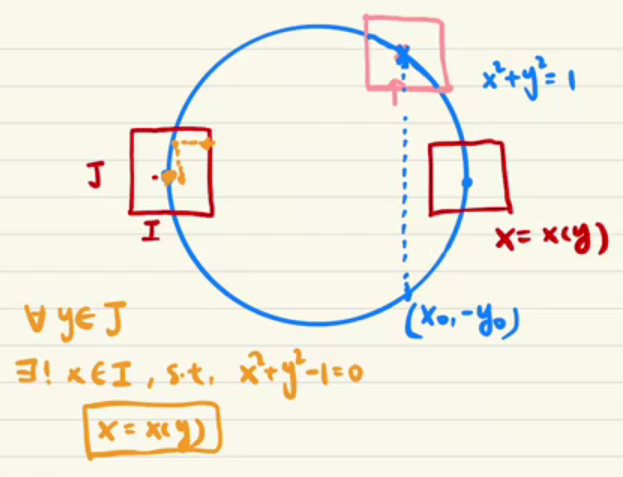 x²+y²=1
J
I
x=x(y)
(x₀,-y₀)
∀ y∈J
∃! x∈I, s.t. x²+y²-1=0
x=x(y)